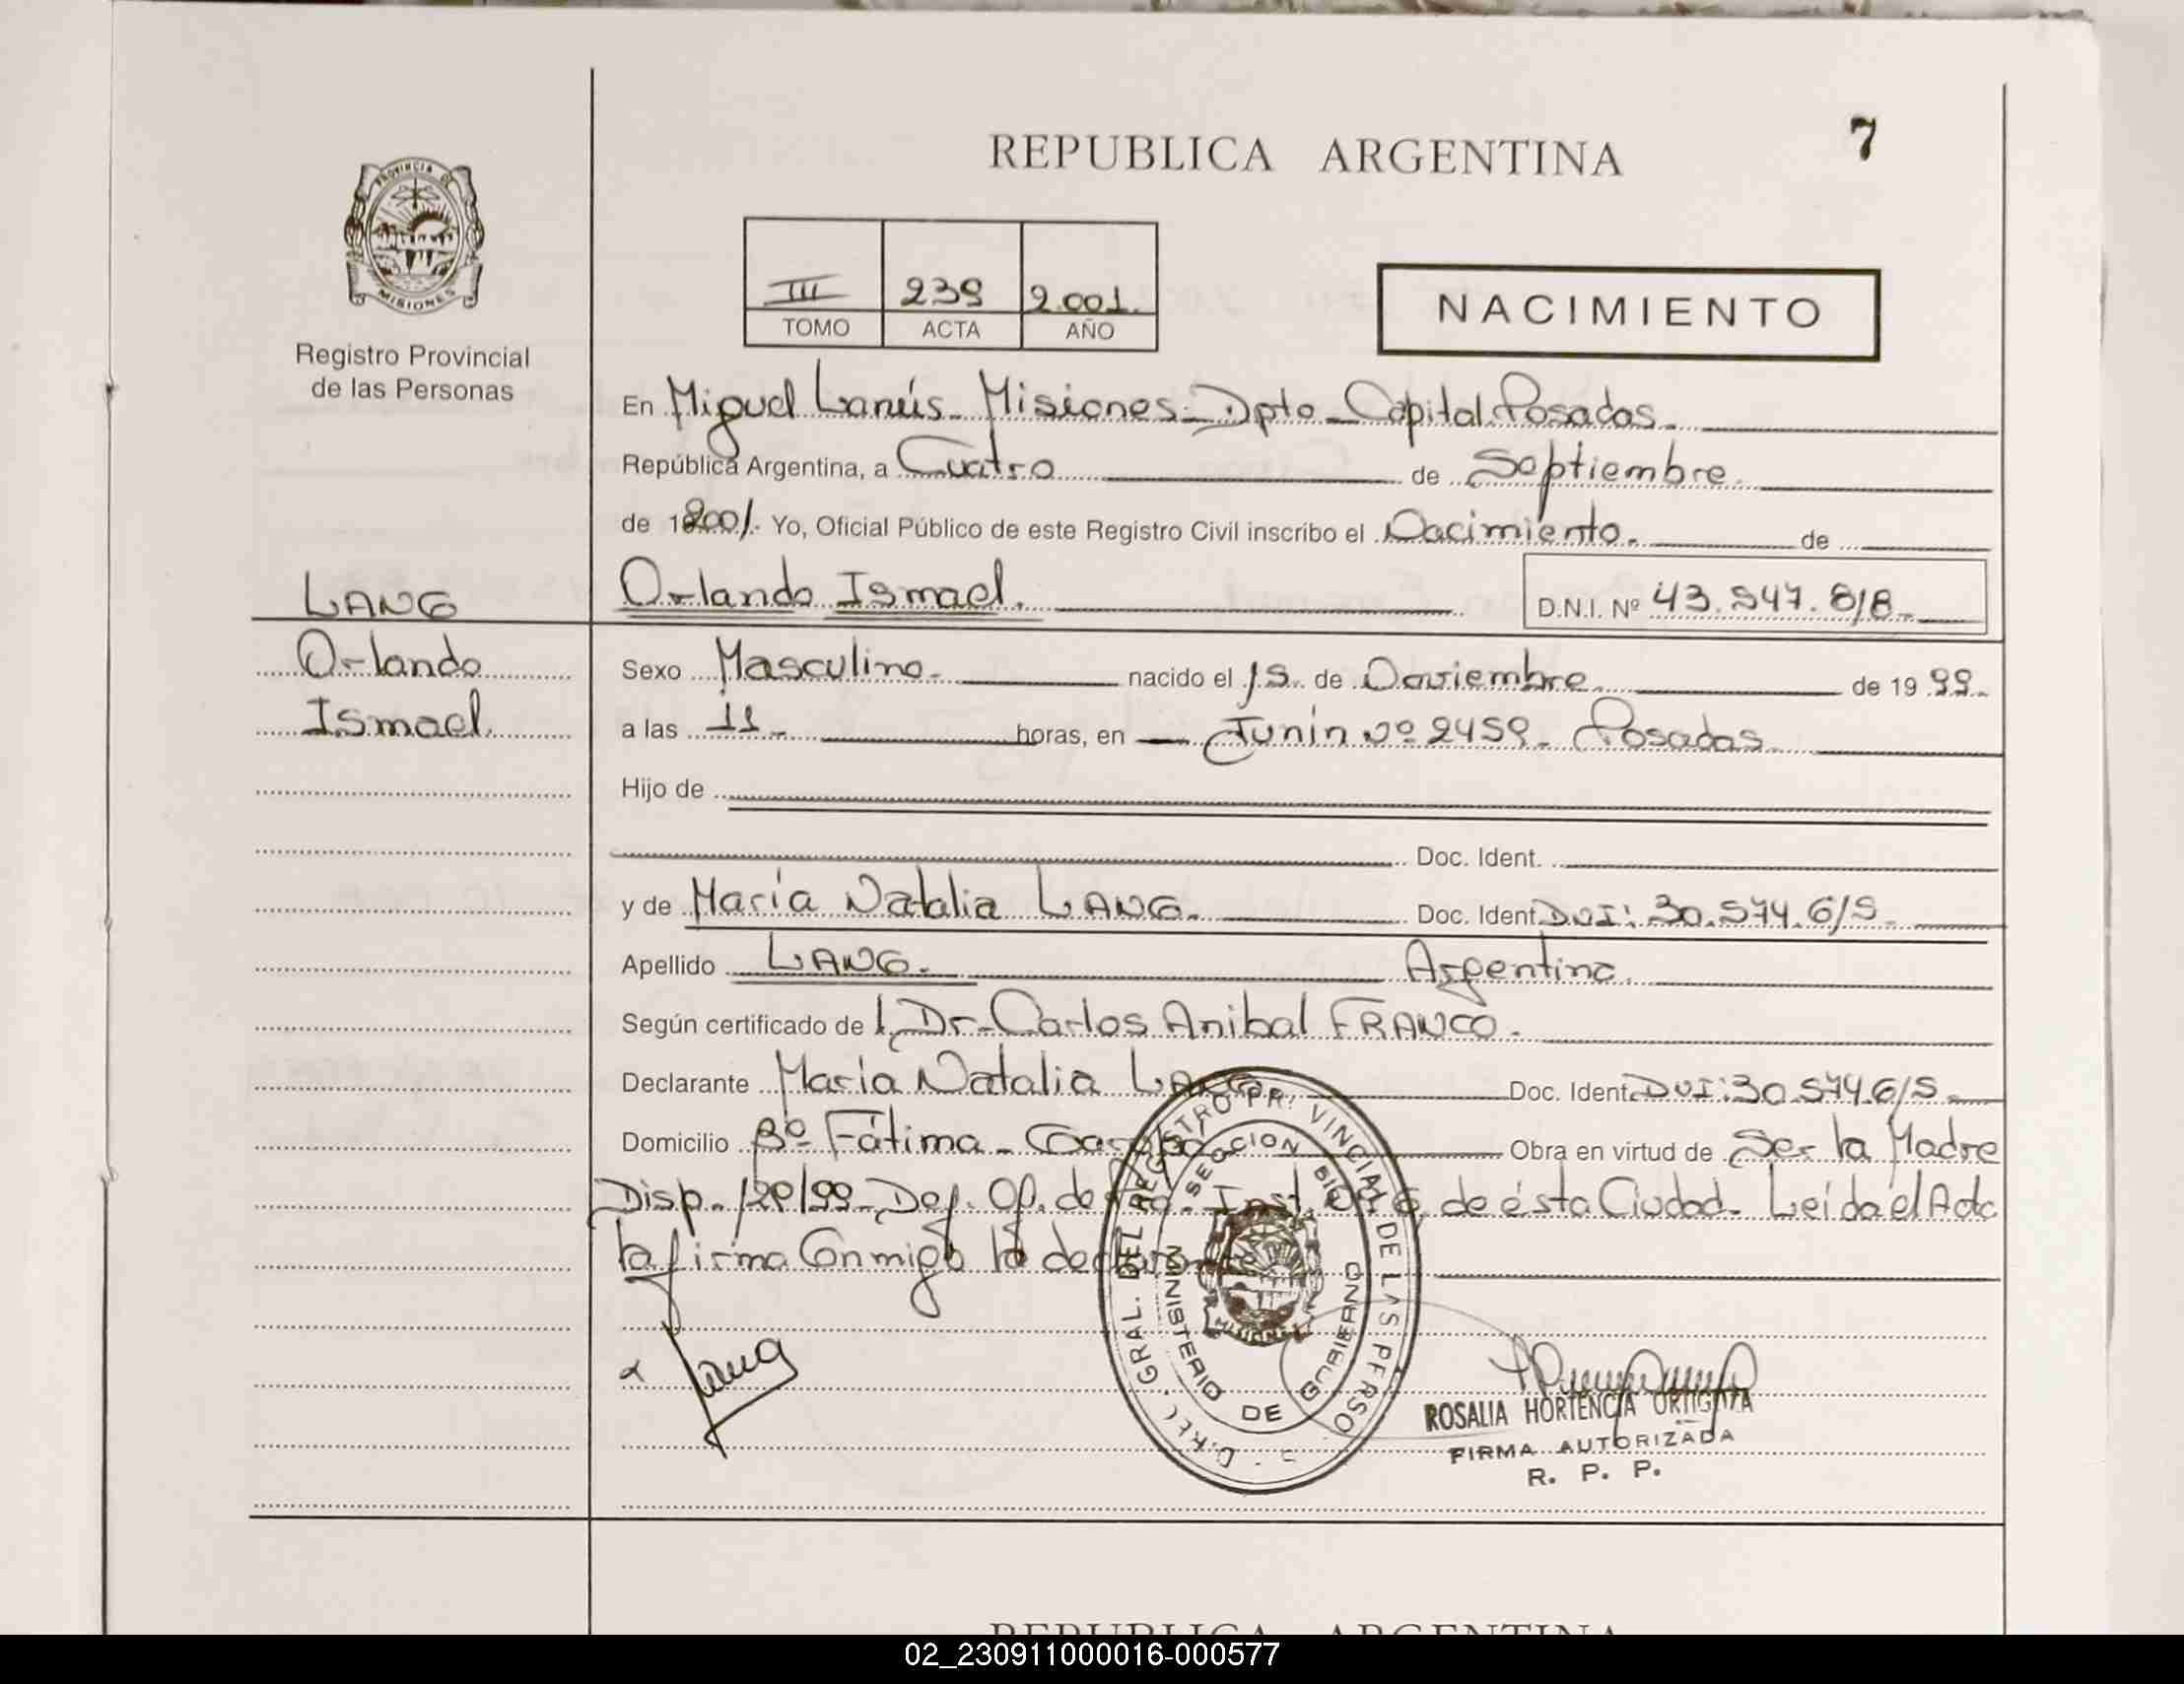 REPUBLICA ARGENTINA
7
PROVINCIA DE
MISIONES
Registro Provincial
de las Personas
III 239 2.001.
TOMO ACTA AÑO
NACIMIENTO
En Miguel Lanús - Misiones - Dpto - Capital Posadas.
República Argentina, a Cuatro de Septiembre.
de 2001. Yo, Oficial Público de este Registro Civil inscribo el Nacimiento. de
LANG
Orlando Ismael.
D.N.I. Nº 43.947.818
Orlando
Ismael.
Sexo Masculino. nacido el 19 de Noviembre de 19 99.
a las 11 horas, en Junín Nº 2459. Posadas
Hijo de
Doc. Ident.
y de María Natalia LANG. Doc. Ident. DNI: 30.574.615
Apellido LANG. Argentina.
Según certificado de l. Dr. Carlos Anibal FRANCO.
Declarante María Natalia LANG Doc. Ident. DNI: 30.574.615
Domicilio Bº Fátima - Garupá Obra en virtud de Ser la Madre
Disp. Def. Of. de Inst. Nº 6, de ésta Ciudad. Leída el Acta
la firma Conmigo la declarante
Lang
DIREC. GRAL. DEL REGISTRO PROVINCIAL DE LAS PERSO
SECCION
MINISTERIO DE GOBIERNO
MISIONES
ROSALIA HORTENCIA ORTIGOZA
FIRMA AUTORIZADA
R. P. P.
REPUBLICA ARGENTINA
02_230911000016-000577